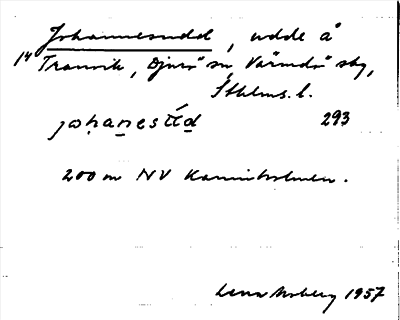 Johannesudd, udde å
14 Tranvik, Djurö sn, Värmdö skg,
Sthlms. l.
johanesud 293
200 m NV Kaninholmen.
1957